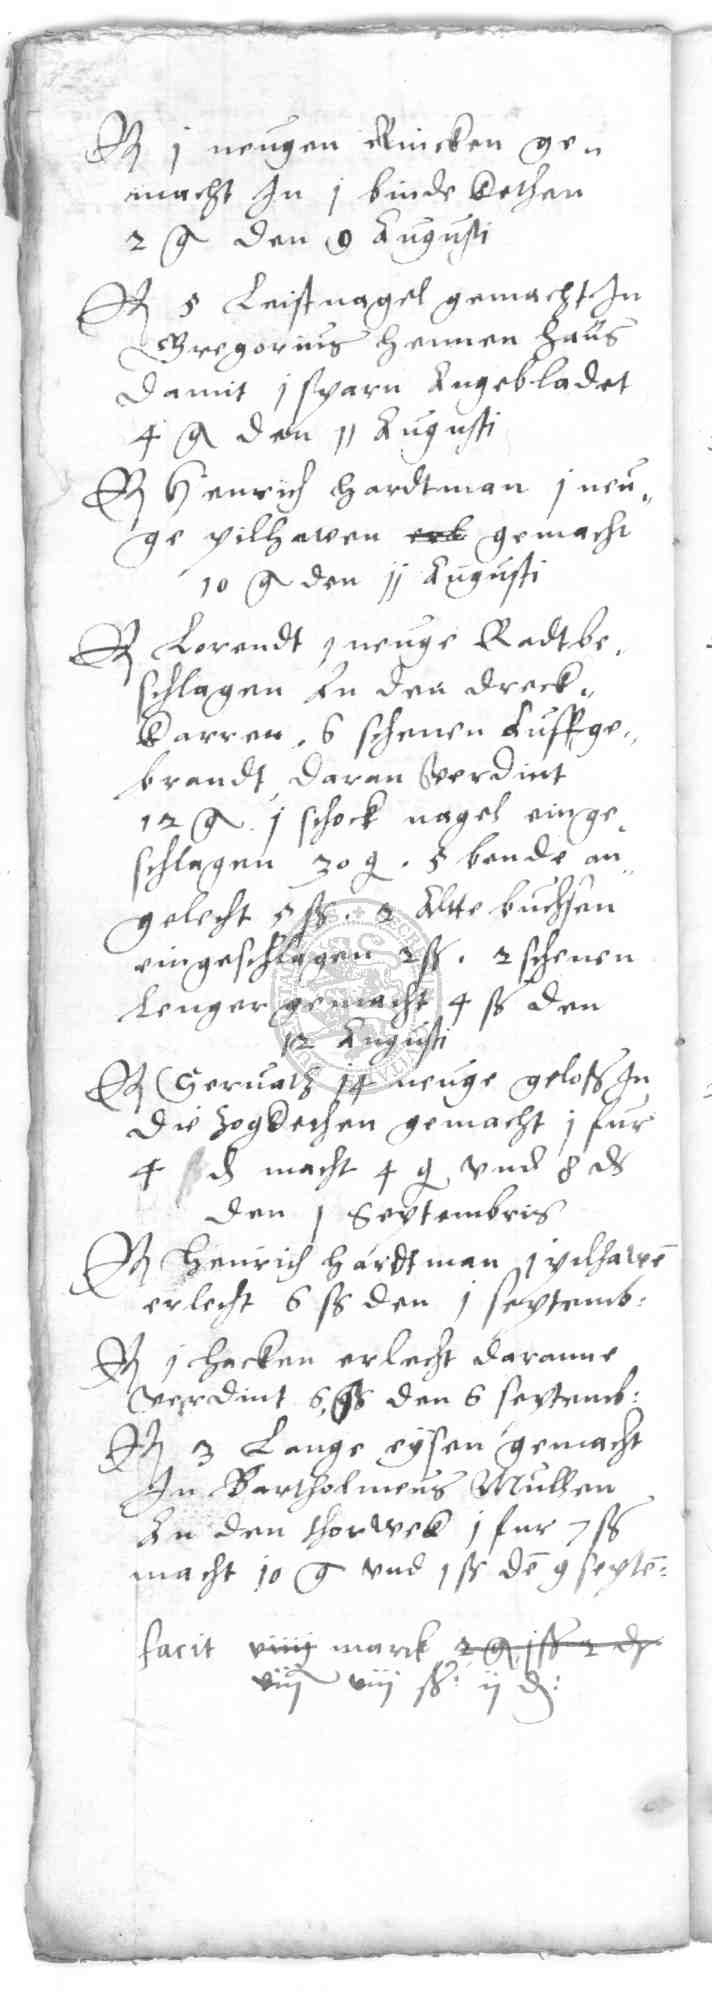 R j neugen Rincken ge„
macht In j binde Kethen
2 g den 9 Augusti
R 5 Leistnagel gemacht In
Gregorius Hennen Haus
damit j sparn Angebladet
4 g den 11 Augusti
R Henrich Hardtman j neu„
ge pilhawen erl gemacht
10 g den jj Augusti
R Lorendt j neuge Radt be„
schlagen An den dreck„
Karren. 6 schenen Auffge„
brandt daran verdint
12 g. j schock nagel einge„
schlagen 30 g. 5 bende an„
gelecht 5 ß. 2 Alte buchsen
eingeschlagen 2 ß. 2 schenen
lenger gemacht 4 ß den
12 Augusti
R Seruatz 14 neuge geloss In
die zogKethen gemacht j fur
4 d macht 4 g vnd 8 d
den 1 Septembris
R Henrich Hardtman j pilhawē
erlecht 6 ß den j septemb:
R j hacken erlecht daranne
verdint 6 ß den 6 septemb:
R 3 Lange eysen gemacht
In Bartholmeus Mullen
An den thorwek j fur 7 ß
macht 10 g vnd 1 ß dē 9 septē:
facit viiij marck 2 g j ß 2 d
viij viij ß: ij d: